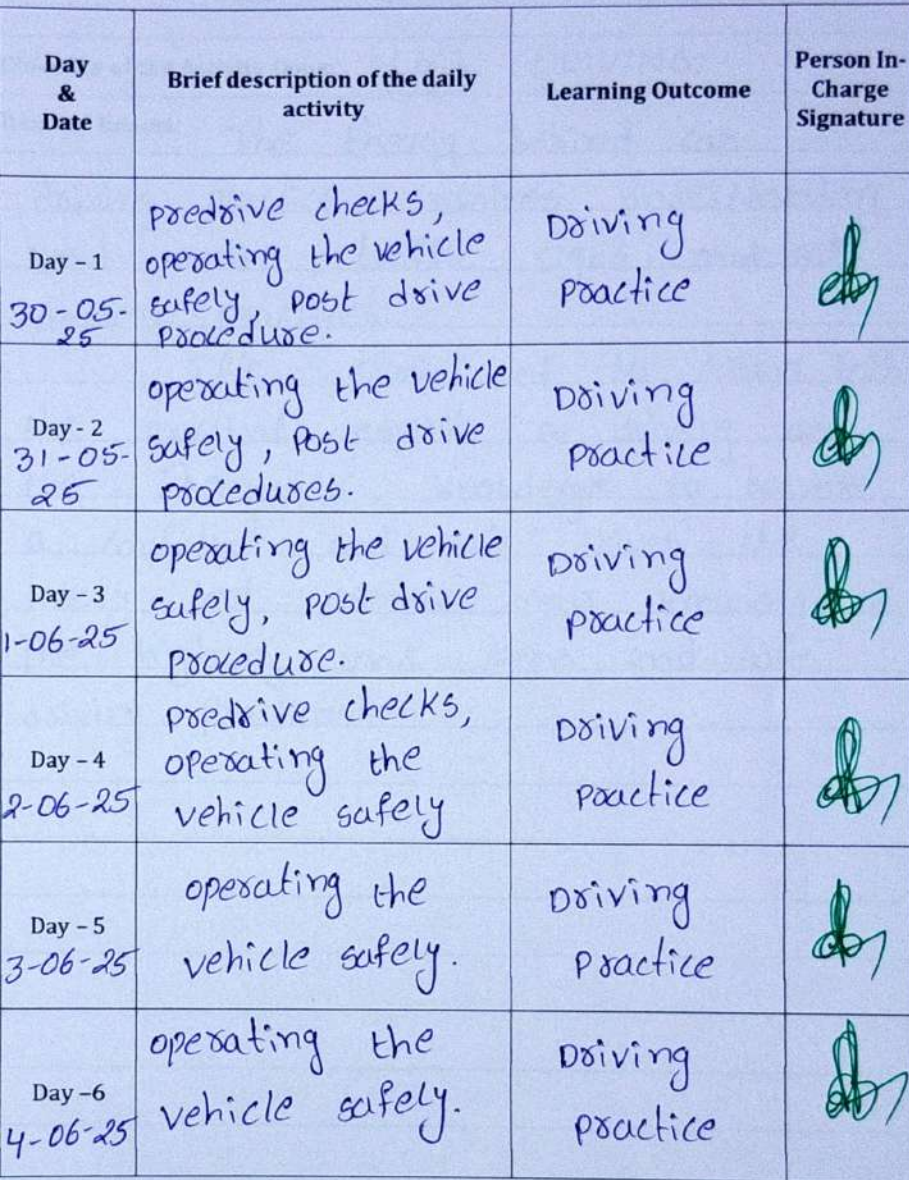 Day
&
Date
Brief description of the daily
activity
Learning Outcome
Person In-
Charge
Signature
Day - 1
30-05-
25
predrive checks,
operating the vehicle
safely, post drive
procedure.
Driving
practice
Day - 2
31-05-
25
operating the vehicle
safely, Post drive
procedures.
Driving
practice
Day - 3
1-06-25
operating the vehicle
safely, post drive
procedure.
Driving
practice
Day - 4
2-06-25
predrive checks,
operating the
vehicle safely
Driving
practice
Day - 5
3-06-25
operating the
vehicle safely.
Driving
Practice
Day -6
4-06-25
operating the
vehicle safely.
Driving
practice